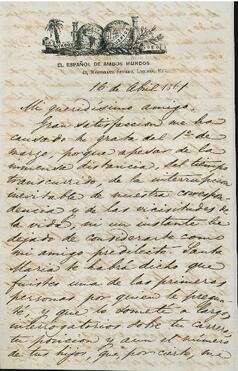 EL ESPAÑOL DE AMBOS MUNDOS
16 de Abril 1861
Mi queridisimo amigo.
Gran satisfaccion me ha
causado la grata del 1º de
marzo, porque apesar de la
inmensa distancia, del tiempo
transcurrido, de la interrupcion
inevitable de nuestra correspon-
dencia y de las vicisitudes de
la vida, ni un instante he
dejado de considerarle como
mi amigo predilecto. Santa
Maria le habrá dicho que
fuistes una de las primeras
personas por quien le pregun-
té, y que lo someti a largos
interrogatorios sobre tu carrera,
tu posicion y aun el numero
de tus hijos, que, por cierto, me